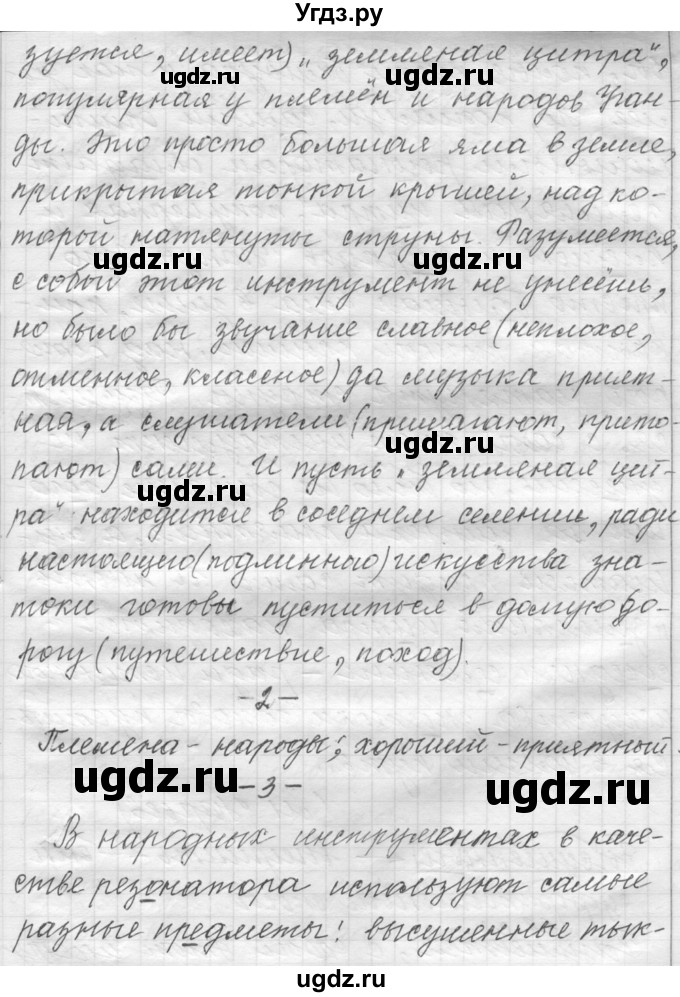 Угдз.ру
зуется, имеет) „земляная цитра“,
популярная у племён и народов Уган-
ды. Это просто большая яма в земле,
прикрытая тонкой крышей, над ко-
торой натянуты струны. Разумеется,
с собой этот инструмент не унесёшь,
но было бы звучание славное (неплохое,
отменное, классное) да музыка прият-
ная, а слушатели (пришагают, прито-
пают) сами. И пусть „земляная цит-
ра“ находится в соседнем селении, ради
настоящего (подлинного) искусства зна-
токи готовы пуститься в долгую до-
рогу (путешествие, поход).
-2-
Племена - народы; хороший - приятный.
-3-
В народных инструментах в каче-
стве резонатора используют самые
разные предметы: высушенные тык-
ugdz.ru
ugdz.ru
ugdz.ru
ugdz.ru
ugdz.ru
ugdz.ru
ugdz.ru
ugdz.ru
ugdz.ru
ugdz.ru
ugdz.ru
ugdz.ru